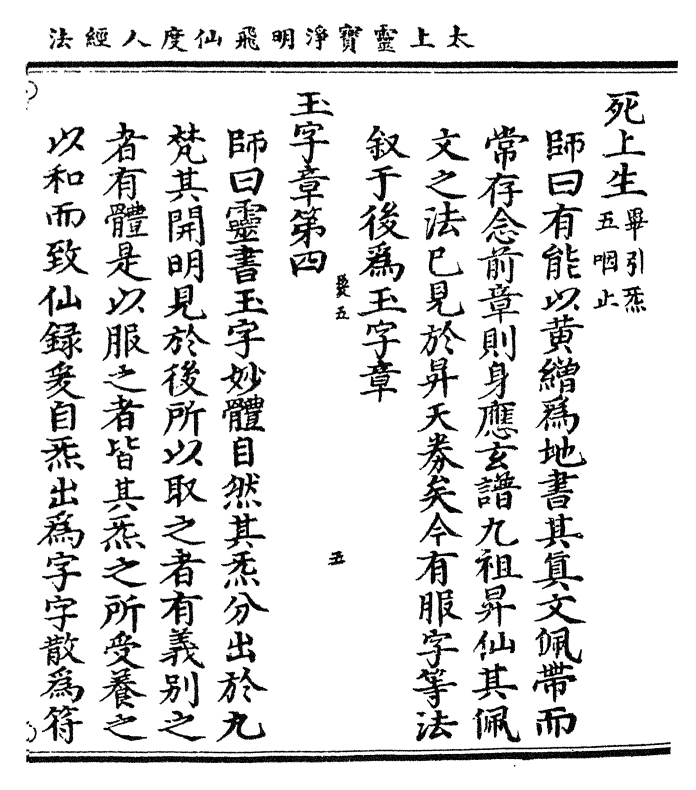 太上靈寶淨明飛仙度人經法
死上生畢引炁五咽止
師曰有能以黄繒爲地書其眞文佩帶而
常存念前章則身應玄譜九祖昇仙其佩
文之法已見於昇天券矣今有服字等法
叙于後爲玉字章
五
玉字章第四
師曰靈書玉字妙體自然其炁分出於九
梵其開明見於後所以取之者有義别之
者有體是以服之者皆其炁之所受養之
以和而致仙録爰自炁出爲字字散爲符